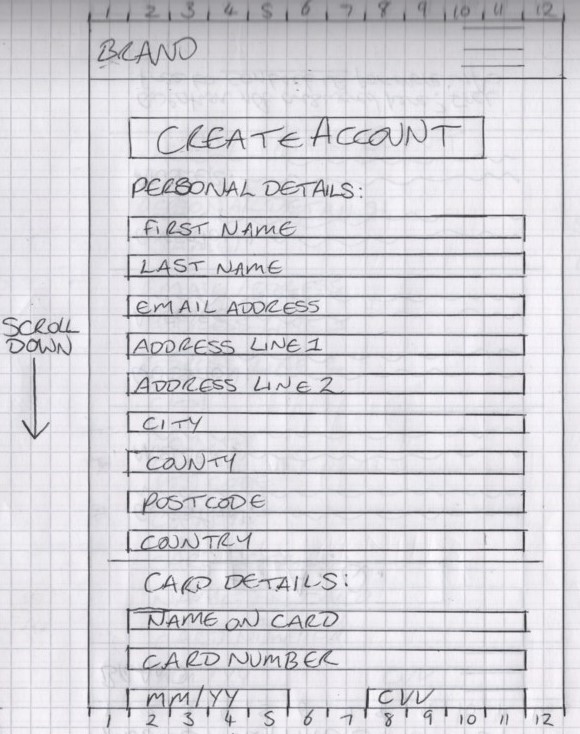 1 2 3 4 5 6 7 8 9 10 11 12
BRAND
CREATE ACCOUNT
PERSONAL DETAILS:
FIRST NAME
LAST NAME
EMAIL ADDRESS
SCROLL
DOWN
ADDRESS LINE 1
ADDRESS LINE 2
CITY
COUNTY
POSTCODE
COUNTRY
CARD DETAILS:
NAME ON CARD
CARD NUMBER
MM/YY CVV
1 2 3 4 5 6 7 8 9 10 11 12